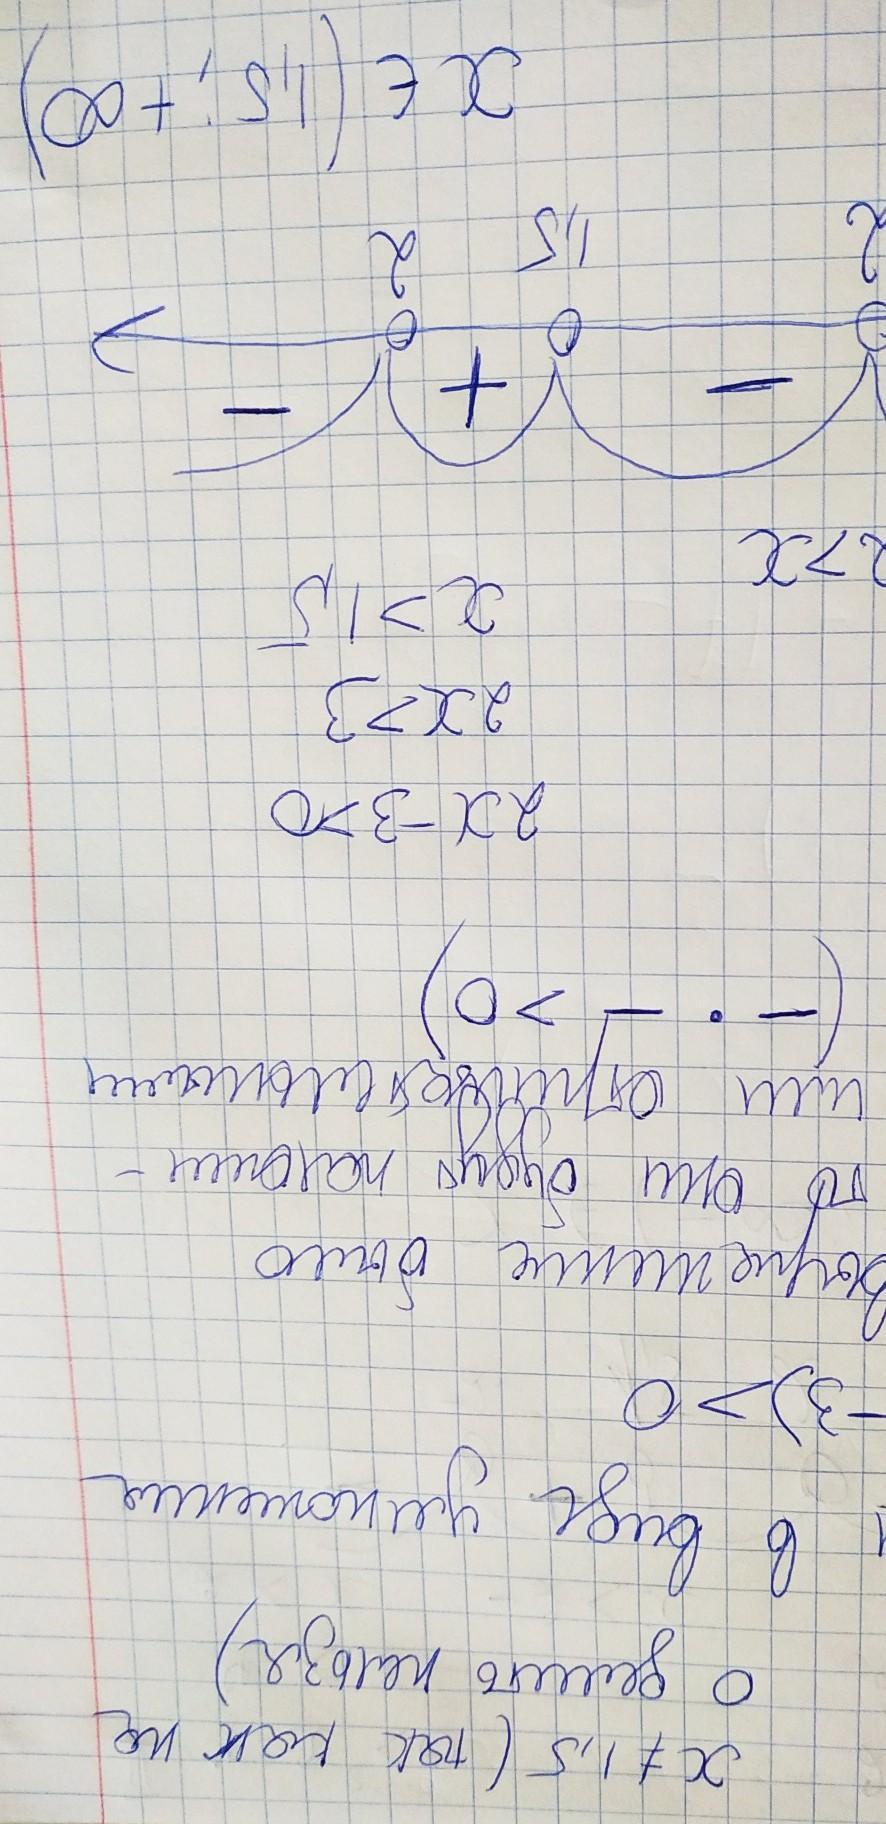 x ≠ 1,5 (так как на
0 делить нельзя)
в виде умножения
-3) > 0
выражение было
то они будут положит-
или отрицательными
(— · — > 0)
2x - 3 > 0
2x > 3
x > 1,5
2 > x
— + —
2 1,5 2
x ∈ (1,5; +∞)